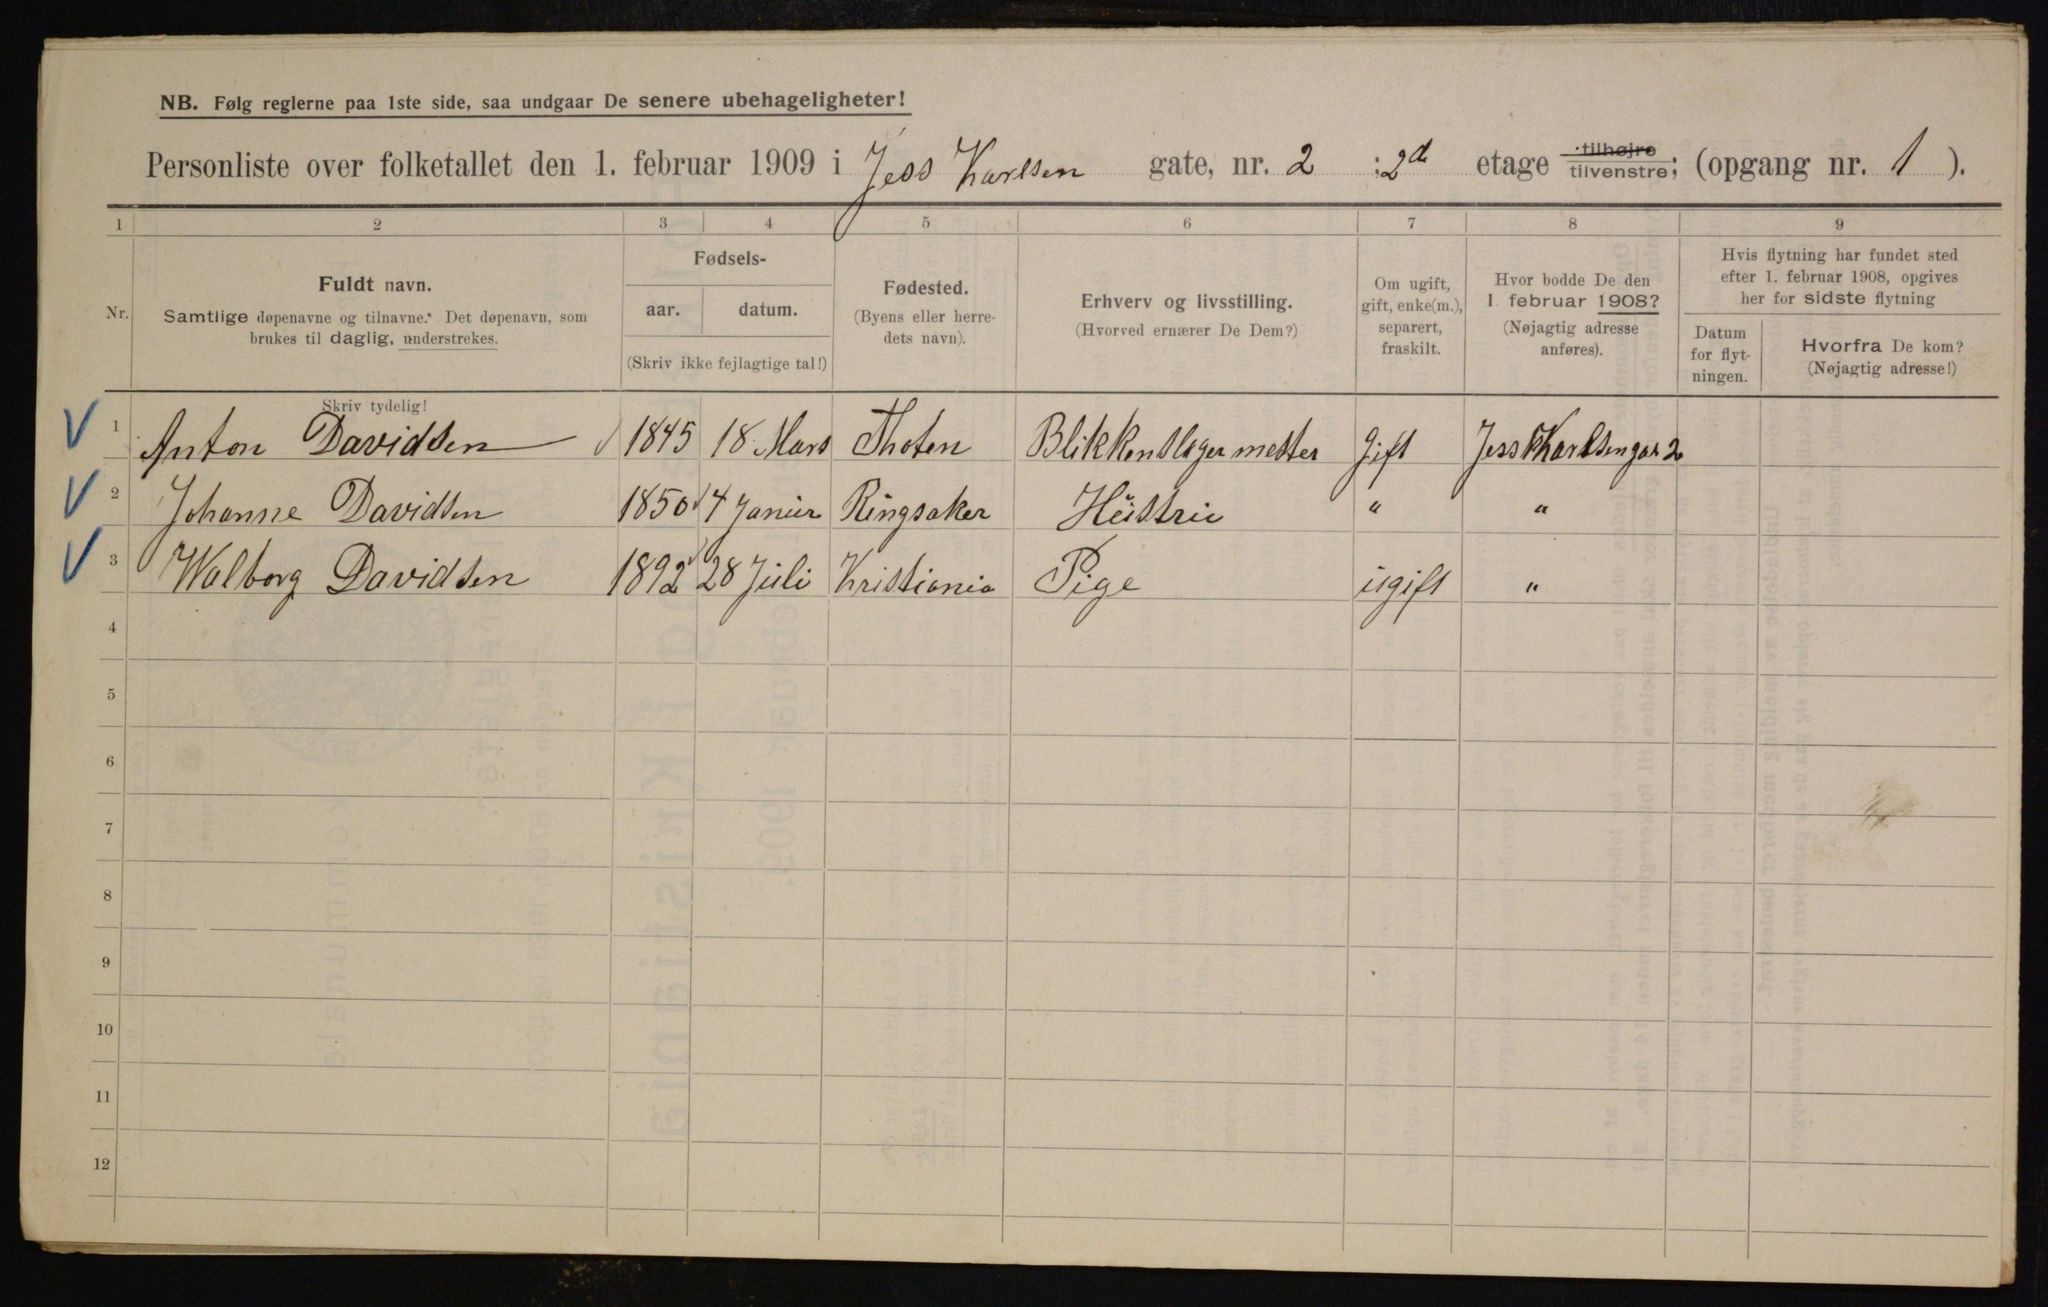 NB. Følg reglerne paa 1ste side, saa undgaar De senere ubehageligheter!
Personliste over folketallet den 1. februar 1909 i Jess Karlsen gate, nr. 2 ; 2d etage tilhøjre tilvenstre; (opgang nr. 1 ).
1 2 3 4 5 6 7 8 9
Nr.
Fuldt navn.
Samtlige døpenavne og tilnavne. Det døpenavn, som
brukes til daglig, understrekes.
Skriv tydelig!
Fødsels-
aar. datum.
(Skriv ikke fejlagtige tal!)
Fødested.
(Byens eller herre-
dets navn).
Erhverv og livsstilling.
(Hvorved ernærer De Dem?)
Om ugift,
gift, enke(m.),
separert,
fraskilt.
Hvor bodde De den
1. februar 1908?
(Nøjagtig adresse
anføres).
Hvis flytning har fundet sted
efter 1. februar 1908, opgives
her for sidste flytning
Datum
for flyt-
ningen.
Hvorfra De kom?
(Nøjagtig adresse!)
1 Anton Davidsen 1845 18 Mars Thoten Blikkenslager mester Gift Jess Karlsengaг 2
2 Johanne Davidsen 1850 4 Januer Ringsaker Hüstrie " "
3 Walborg Davidsen 1892 28 Júli Kristiania Pige úgift "
4
5
6
7
8
9
10
11
12